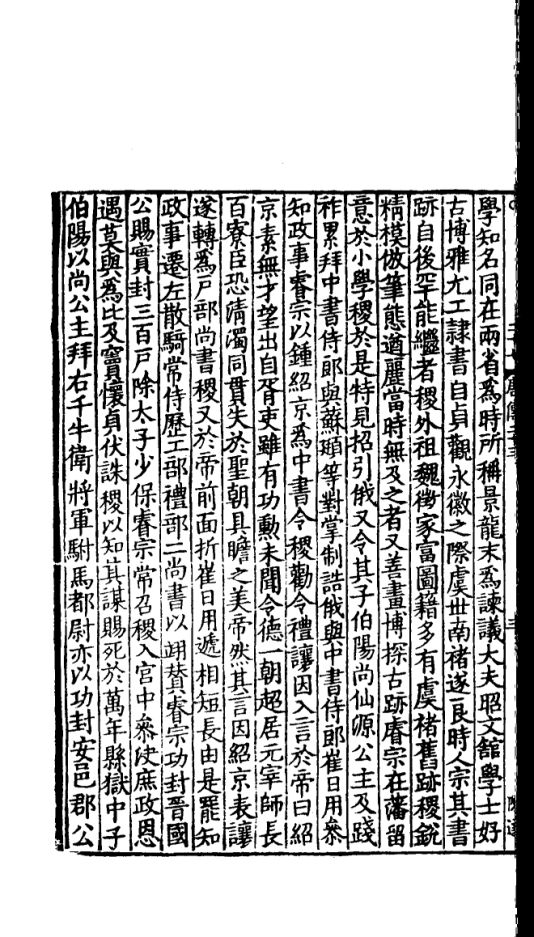 學知名同在兩省爲時所稱景龍末爲諫議大夫昭文舘學士好
古博雅尤工隷書自貞觀永徽之際虞世南褚遂良時人宗其書
跡自後罕能繼者稷外祖魏徵家富圖籍多有虞褚舊跡稷銳
精模倣筆態遒麗當時無及之者又善畫博探古跡睿宗在藩留
意於小學稷於是特見招引俄又令其子伯陽尚仙源公主及踐
祚累拜中書侍郎與蘇頲等對掌制誥俄與中書侍郎崔日用叅
知政事睿宗以鍾紹京爲中書令稷勸令禮讓因入言於帝曰紹
京素無才望出自胥吏雖有功勲未聞令德一朝超居元宰師長
百寮臣恐清濁同貫失於聖朝具瞻之美帝然其言因紹京表讓
遂轉爲戸部尚書稷又於帝前面折崔日用遞相短長由是罷知
政事遷左散騎常侍歷工部禮部二尚書以翊賛睿宗功封晉國
公賜實封三百戸除太子少保睿宗常召稷入宫中叅决庶政恩
遇莫與爲比及竇懷貞伏誅稷以知其謀賜死於萬年縣獄中子
伯陽以尚公主拜右千牛衛將軍駙馬都尉亦以功封安邑郡公